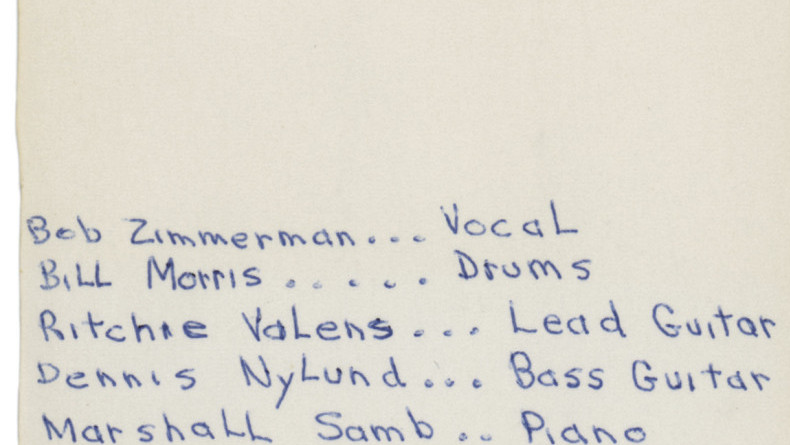 Bob Zimmerman... Vocal
Bill Morris ..... Drums
Ritchie Valens... Lead Guitar
Dennis Nylund... Bass Guitar
Marshall Samb .. Piano